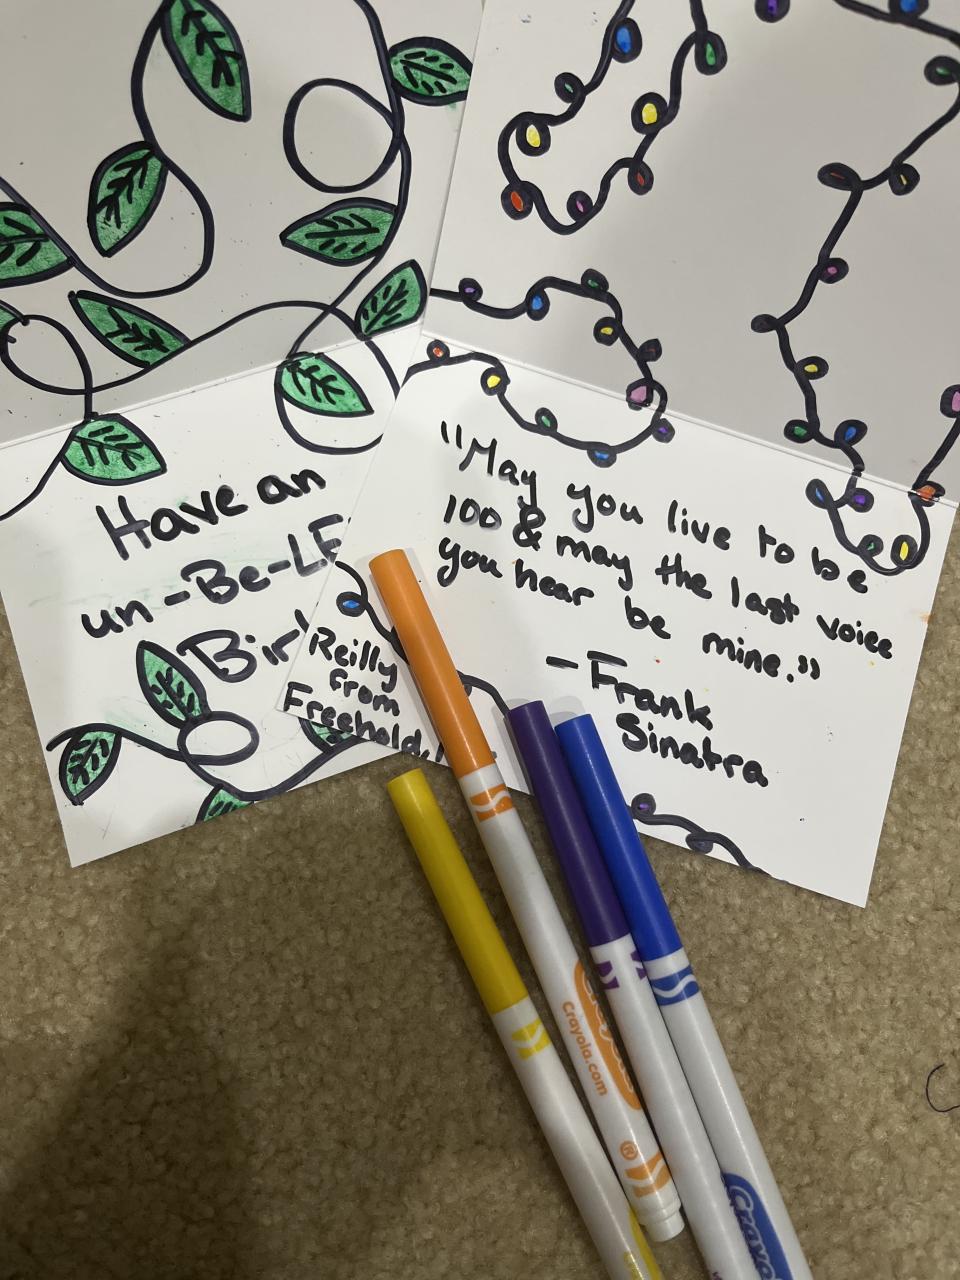 Have an
un-Be-LE
Bir
"May you live to be
100 & may the last voice
you hear be mine."
-Frank
Sinatra
Reilly
from
Freehold,
Crayola
Crayola.com
®
Crayo